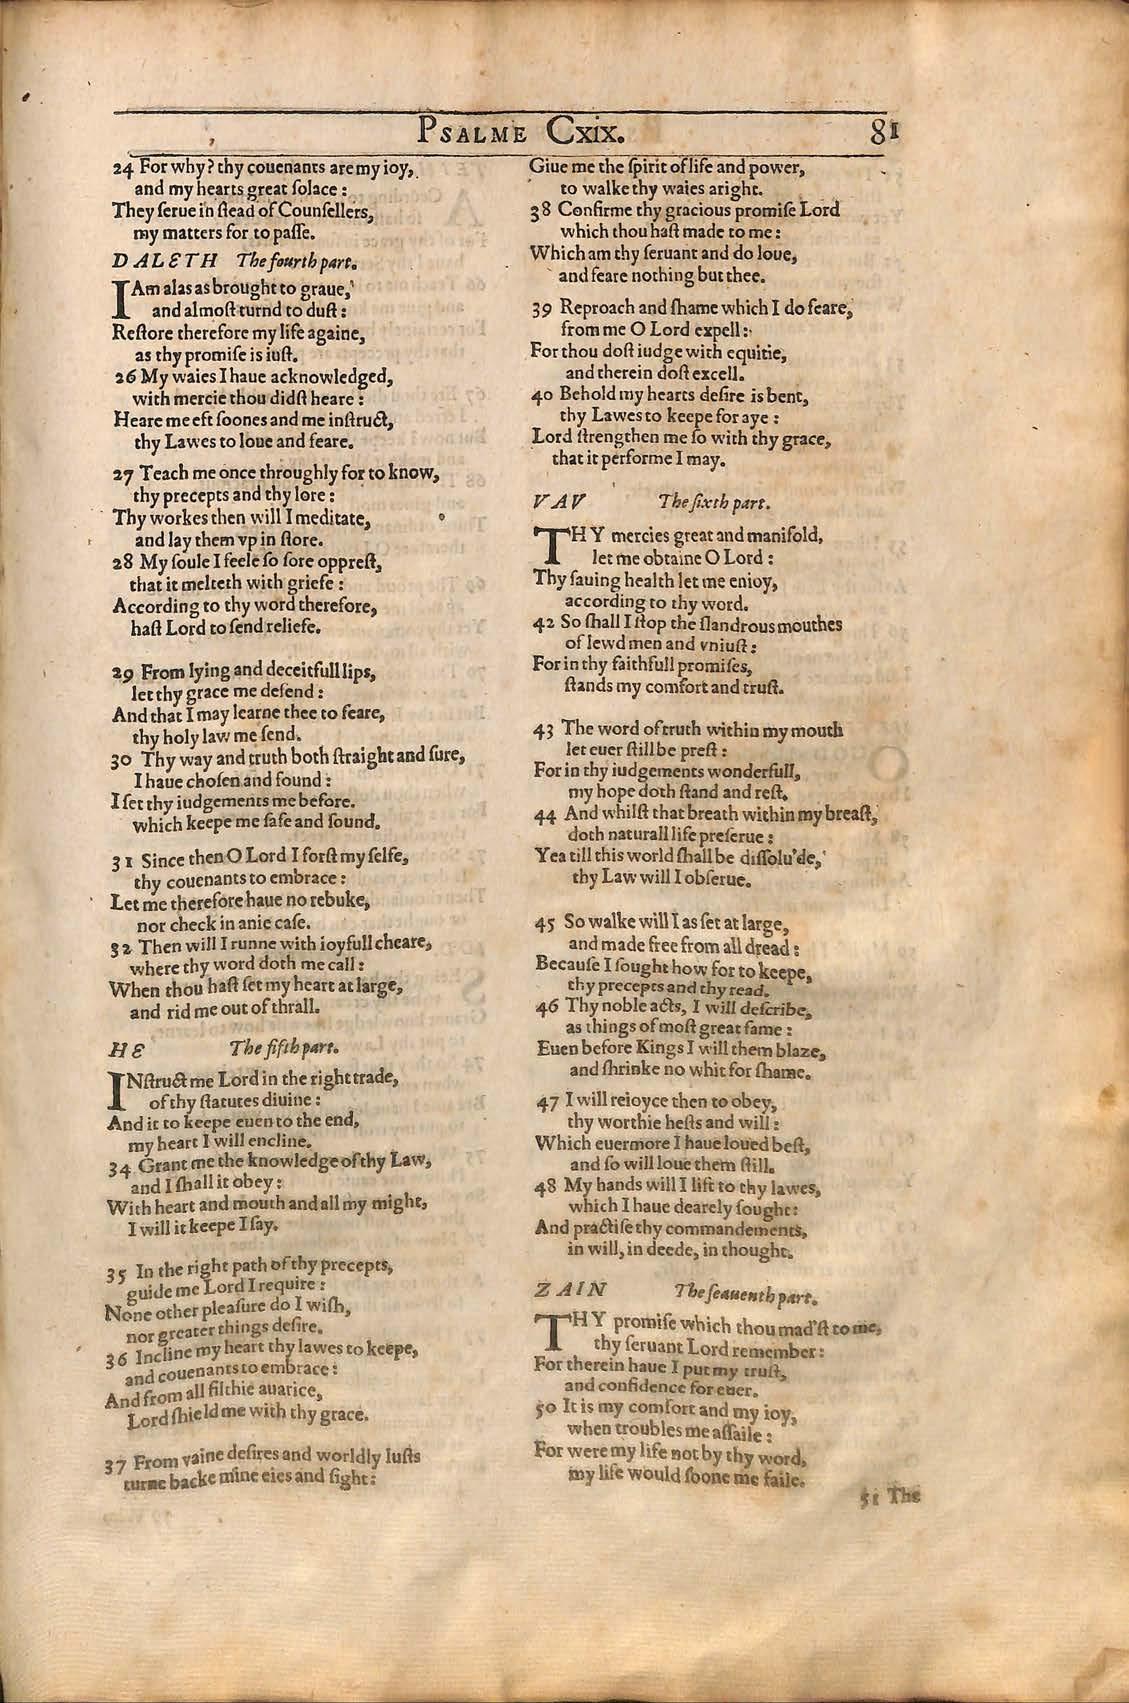 PSALME Cxix. 81
24 For why? thy couenants are my ioy,
and my hearts great ſolace:
They ſerue in ſtead of Counſellers,
my matters for to paſſe.
DALETH The fourth part.
I Am alas as brought to graue,
and almoſt turnd to duſt:
Reſtore therefore my life againe,
as thy promiſe is iuſt.
26 My waies I haue acknowledged,
with mercie thou didſt heare:
Heare me eft ſoones and me inſtruct,
thy Lawes to loue and feare.
27 Teach me once throughly for to know,
thy precepts and thy lore:
Thy workes then will I meditate,
and lay them vp in ſtore.
28 My ſoule I feele ſo ſore oppreſt,
that it melteth with griefe:
According to thy word therefore,
haſt Lord to ſend reliefe.
29 From lying and deceitfull lips,
let thy grace me defend:
And that I may learne thee to feare,
thy holy law me ſend.
30 Thy way and truth both ſtraight and ſure,
I haue choſen and found:
I ſet thy iudgements me before.
which keepe me ſafe and ſound.
31 Since then O Lord I forſt my ſelfe,
thy couenants to embrace:
Let me therefore haue no rebuke,
nor check in anie caſe.
32 Then will I runne with ioyfull cheare,
where thy word doth me call:
When thou haſt ſet my heart at large,
and rid me out of thrall.
HE The fifth part.
INſtruct me Lord in the right trade,
of thy ſtatutes diuine:
And it to keepe euen to the end,
my heart I will encline.
34 Grant me the knowledge of thy Law,
and I ſhall it obey:
With heart and mouth and all my might,
I will it keepe I ſay.
35 In the right path of thy precepts,
guide me Lord I require:
None other pleaſure do I wiſh,
nor greater things deſire.
36 Incline my heart thy lawes to keepe,
and couenants to embrace:
And from all filthie auarice,
Lord ſhield me with thy grace.
37 From vaine deſires and worldly luſts
turne backe mine eies and ſight:
Giue me the ſpirit of life and power,
to walke thy waies aright.
38 Confirme thy gracious promiſe Lord
which thou haſt made to me:
Which am thy ſeruant and do loue,
and feare nothing but thee.
39 Reproach and ſhame which I do feare,
from me O Lord expell:
For thou doſt iudge with equitie,
and therein doſt excell.
40 Behold my hearts deſire is bent,
thy Lawes to keepe for aye:
Lord ſtrengthen me ſo with thy grace,
that it performe I may.
VAV The ſixth part.
THY mercies great and manifold,
let me obtaine O Lord:
Thy ſauing health let me enioy,
according to thy word.
42 So ſhall I ſtop the ſlandrous mouthes
of lewd men and vniuſt:
For in thy faithfull promiſes,
ſtands my comfort and truſt.
43 The word of truth within my mouth
let euer ſtill be preſt:
For in thy iudgements wonderfull,
my hope doth ſtand and reſt.
44 And whilſt that breath within my breaſt,
doth naturall life preſerue:
Yea till this world ſhall be diſſolu'de,
thy Law will I obſerue.
45 So walke will I as ſet at large,
and made free from all dread:
Becauſe I ſought how for to keepe,
thy precepts and thy read.
46 Thy noble acts, I will deſcribe,
as things of moſt great fame:
Euen before Kings I will them blaze,
and ſhrinke no whit for ſhame.
47 I will reioyce then to obey,
thy worthie heſts and will:
Which euermore I haue loued beſt,
and ſo will loue them ſtill.
48 My hands will I lift to thy lawes,
which I haue dearely ſought:
And practiſe thy commandements,
in will, in deede, in thought.
ZAIN The ſeauenth part.
THY promiſe which thou mad'ſt to me,
thy ſeruant Lord remember:
For therein haue I put my truſt,
and confidence for euer.
50 It is my comfort and my ioy,
when troubles me aſſaile:
For were my life not by thy word,
my life would ſoone me faile.
51 The